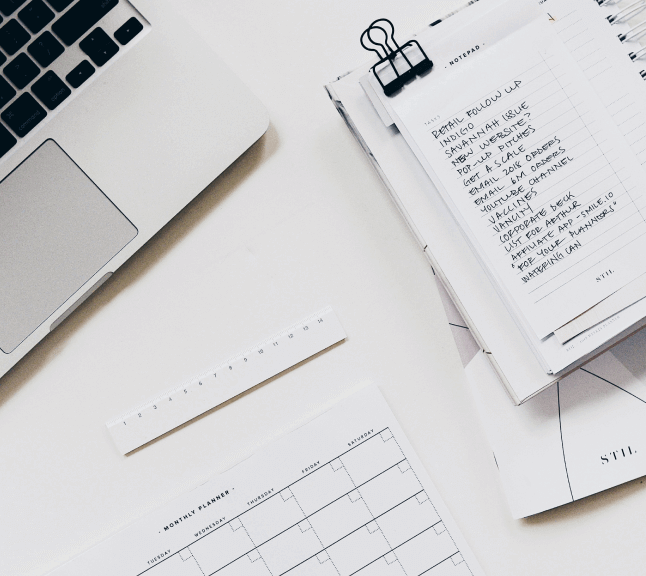 · NOTEPAD ·
TASKS
RETAIL FOLLOW UP
INDIGO
SAVANNAH ISSUE
NEW WEBSITE?
POP-UP PITCHES
GET A SCALE
EMAIL 2018 ORDERS
EMAIL 6M ORDERS
YOUTUBE CHANNEL
VACCINES
VANCITY
CORPORATE DECK
LIST FOR ARTHUR
AFFILIATE APP - SMILE.IO
"FOR YOUR PLANNERS"
WATERING CAN
STIL
STIL
1 2 3 4 5 6 7 8 9 10 11 12 13 14
· MONTHLY PLANNER ·
TUESDAY WEDNESDAY THURSDAY FRIDAY SATURDAY